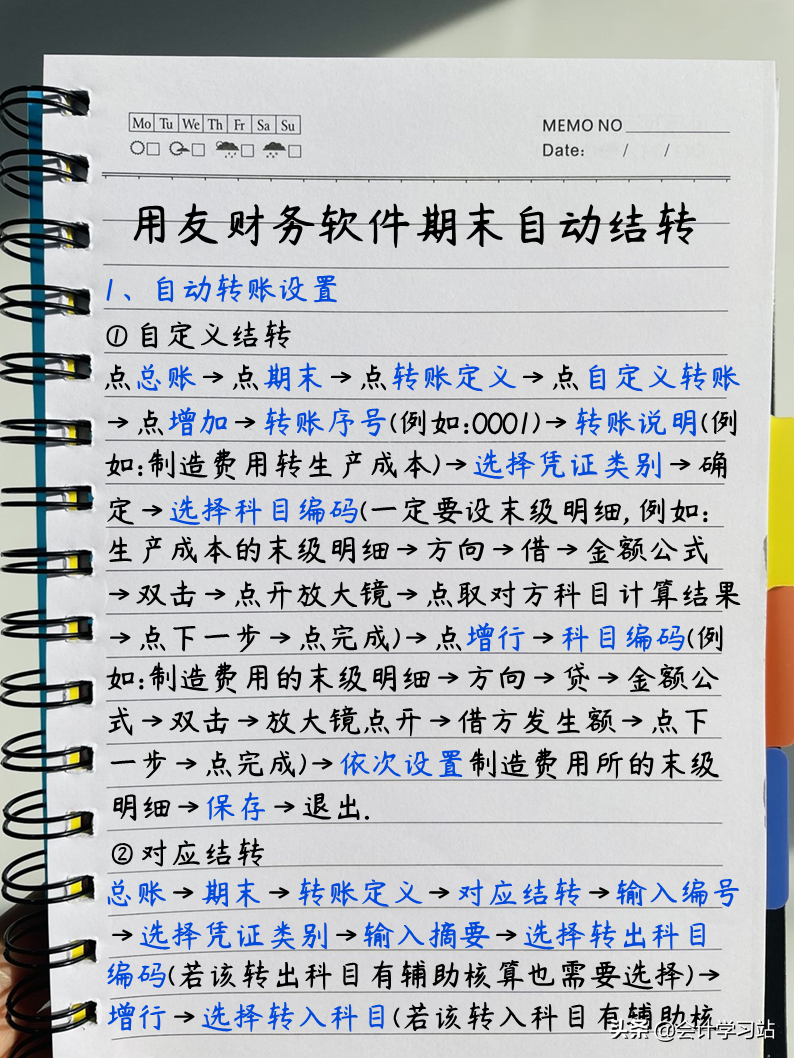 Mo Tu We Th Fr Sa Su
MEMO NO
Date: / /
用友财务软件期末自动结转
1、自动转账设置
①自定义结转
点总账→点期末→点转账定义→点自定义转账
→点增加→转账序号(例如:0001)→转账说明(例
如:制造费用转生产成本)→选择凭证类别→确
定→选择科目编码(一定要设末级明细,例如:
生产成本的末级明细→方向→借→金额公式
→双击→点开放大镜→点取对方科目计算结果
→点下一步→点完成)→点增行→科目编码(例
如:制造费用的末级明细→方向→贷→金额公
式→双击→放大镜点开→借方发生额→点下
一步→点完成)→依次设置制造费用所的末级
明细→保存→退出.
②对应结转
总账→期末→转账定义→对应结转→输入编号
→选择凭证类别→输入摘要→选择转出科目
编码(若该转出科目有辅助核算也需要选择)→
增行→选择转入科目(若该转入科目有辅助核
头条 @会计学习站